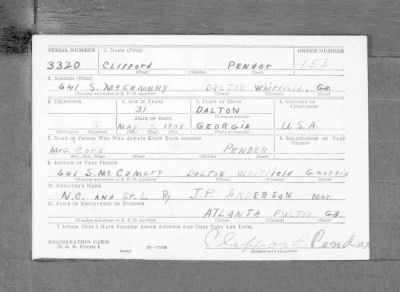 SERIAL NUMBER 1. NAME (Print) ORDER NUMBER
3320 Clifford Pender 153
(First) (Middle) (Last)
2. ADDRESS (Print)
641 S. McGemery DALTON Whitfield, Ga.
(Number and street or R. F. D. number) (Town) (County) (State)
3. TELEPHONE 4. AGE IN YEARS 5. PLACE OF BIRTH 6. COUNTRY OF CITIZENSHIP
31 DALTON
DATE OF BIRTH
MAY 1909 GEORGIA U.S.A.
(Mo.) (Day) (Yr.) (State or country)
7. NAME OF PERSON WHO WILL ALWAYS KNOW YOUR ADDRESS 8. RELATIONSHIP OF THAT PERSON
Mrs CORA PENDER
(Mr., Mrs., Miss) (First) (Middle) (Last)
9. ADDRESS OF THAT PERSON
641 S. McCamery DALTON WHITfield Georgia
(Number and street or R. F. D. number) (Town) (County) (State)
10. EMPLOYER'S NAME
N.C. AND ST. L Ry. J.P. ANDERSON Mgr.
11. PLACE OF EMPLOYMENT OR BUSINESS
ATLANTA FULTON Ga.
(Number and street or R. F. D. number) (Town) (County) (State)
I AFFIRM THAT I HAVE VERIFIED ABOVE ANSWERS AND THAT THEY ARE TRUE.
REGISTRATION CARD
D. S. S. Form 1
Clifford Pender
(Registrant's signature)